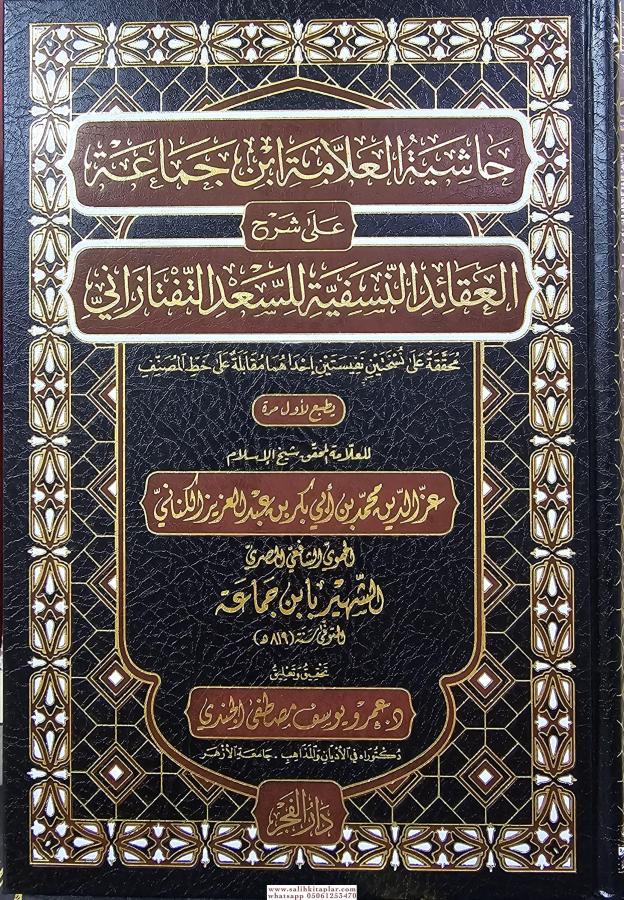 حَاشِيَةُ العَلَّامَةِ ابْنِ جَمَاعَةَ
عَلَى شَرْحِ
العَقَائِدِ النَّسَفِيَّةِ لِلسَّعْدِ التَّفْتَازَانِيِّ
مُحَقَّقَةٌ عَلَى نُسْخَتَيْنِ نَفِيسَتَيْنِ إِحْدَاهُمَا مُقَابَلَةٌ عَلَى خَطِّ المُصَنِّفِ
يطبع لأول مرة
للعلامة المحقق شيخ الإسلام
عزّ الدين محمد بن أبي بكر بن عبد العزيز الكنانيّ
الحموي الشافعي المصري
الشهير بابن جماعة
المتوفى سنة (٨١٩ هـ)
تحقيق وتعليق
د. عمرو يوسف مصطفى الجندي
دكتوراه في الأديان والمذاهب - جامعة الأزهر
دار الفجر
www.salihkitaplar.com
whatsapp 05061253470